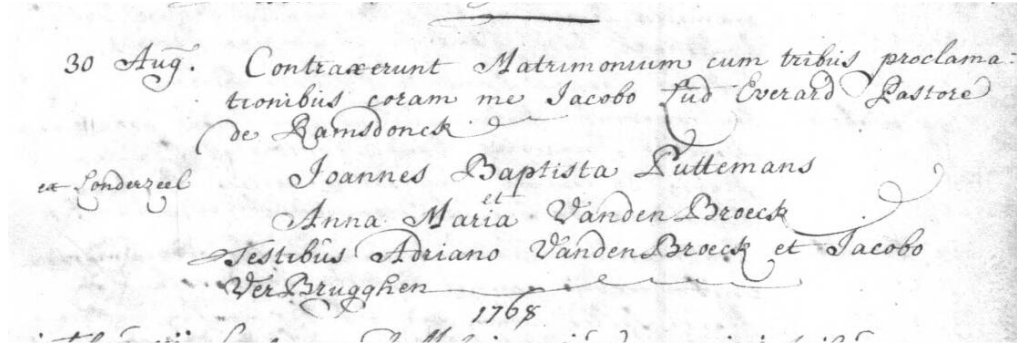 30 Aug. Contraxerunt Matrimonium cum tribus proclama:
tionibus coram me Jacobo Lud Everard Pastore
de Ramsdonck
et Londerzeel Joannes Baptista Puttemans
et
Anna Maria VandenBroeck
Testibus Adriano VandenBroeck et Jacobo
VerBrugghen
1768